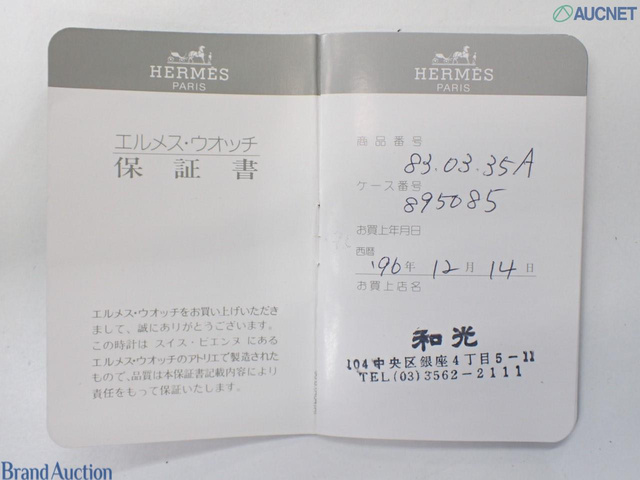 AUCNET
HERMÈS
PARIS
エルメス・ウオッチ
保証書
エルメス・ウオッチをお買い上げいただき
まして、誠にありがとうございます。
この時計は スイス・ビエンヌ にある
エルメス・ウオッチのアトリエで製造された
もので、品質は本保証書記載内容により
責任をもって保証いたします。
HERMÈS
PARIS
商品番号
83.03.35A
ケース番号
895085
お買上年月日
西暦
'96年 12月 14日
お買上店名
和光
104中央区銀座4丁目5-11
TEL(03)3562-2111
Brand Auction